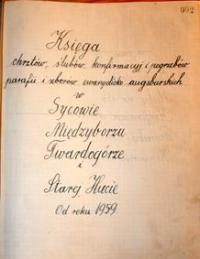 002
Księga
chrztów, ślubów, konfirmacyj i pogrzebów
parafii i zborów ewangelicko augsburskich
w
Sycowie
Międzyborzu
Twardogórze
i
Starej Hucie
Od roku 1959